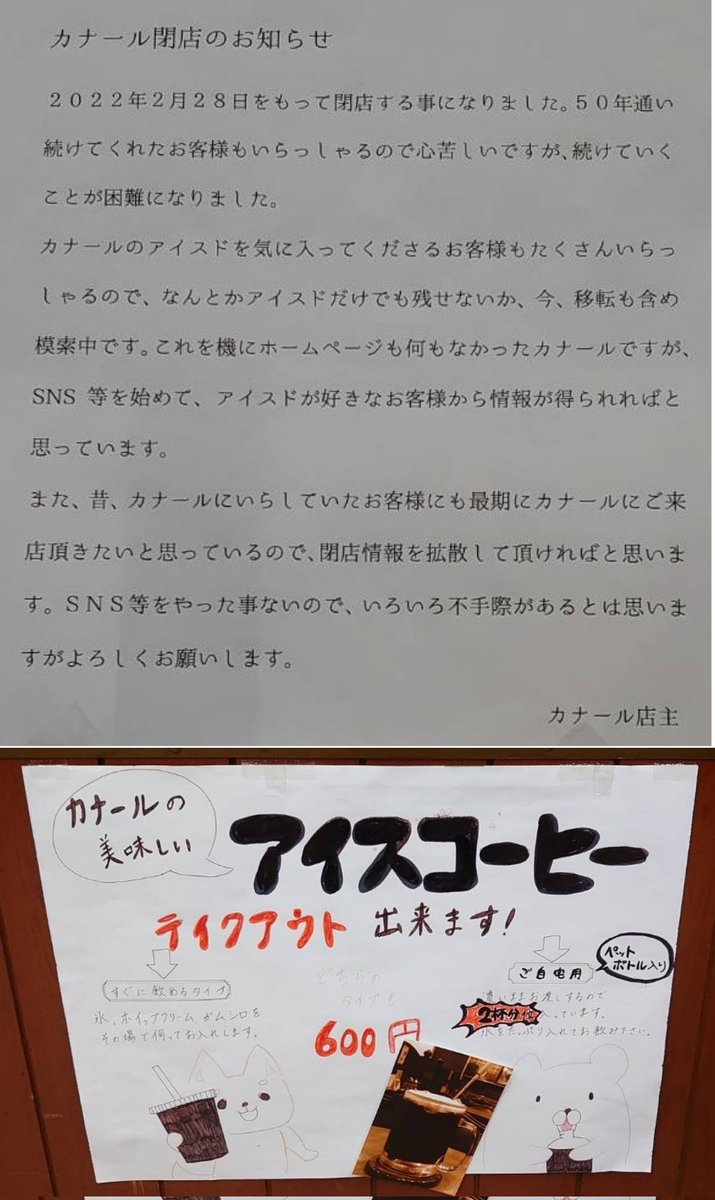 カナール閉店のお知らせ
２０２２年２月２８日をもって閉店する事になりました。５０年通い
続けてくれたお客様もいらっしゃるので心苦しいですが、続けていく
ことが困難になりました。
カナールのアイスドを気に入ってくださるお客様もたくさんいらっ
しゃるので、なんとかアイスドだけでも残せないか、今、移転も含め
模索中です。これを機にホームページも何もなかったカナールですが、
SNS 等を始めて、アイスドが好きなお客様から情報が得られればと
思っています。
また、昔、カナールにいらしていたお客様にも最期にカナールにご来
店頂きたいと思っているので、閉店情報を拡散して頂ければと思いま
す。ＳＮＳ等をやった事ないので、いろいろ不手際があるとは思いま
すがよろしくお願いします。
カナール店主
カナールの
美味しい
アイスコーヒー
テイクアウト 出来ます!
すぐに飲めるタイプ
氷、ホイップクリーム、ガムシロを
その場で伺ってお入れします。
どちらの
タイプも
600円
ご自宅用
ペット
ボトル入り
濃いままお渡しするので
2杯分位入っています。
氷をたっぷり入れてお飲み下さい。